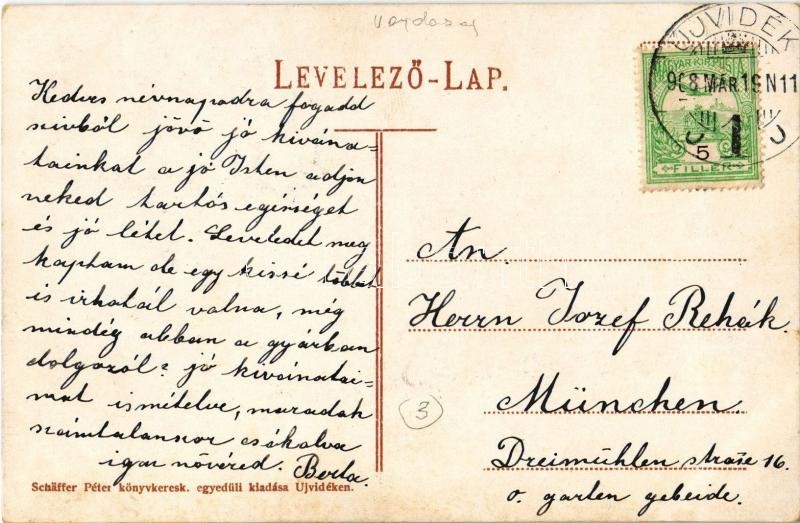 Vajdaság
LEVELEZŐ-LAP.
Kedves névnapodra fogadd
szivből jövő jó kivána-
tainkat a jó Isten adjon
neked tartós egésséget
és jó létet. Leveledet meg
kaptam de egy kissé többet
is irhatál volna, még
mindég abban a gyárban
dolgozól? jó kivánatai-
mat ismételve, maradok
számtalanszor csókolva
igaz nővéred. Berta.
Schäffer Péter könyvkeresk. egyedüli kiadása Ujvidéken.
UJVIDÉK
MAGYAR KIR. POSTA
908 MÁR. 19 N11
5
1
FILLER
An.
Herrn Jozef Rehák.
München.
Dreimühlen straße 16.
o. garten gebeide.
3